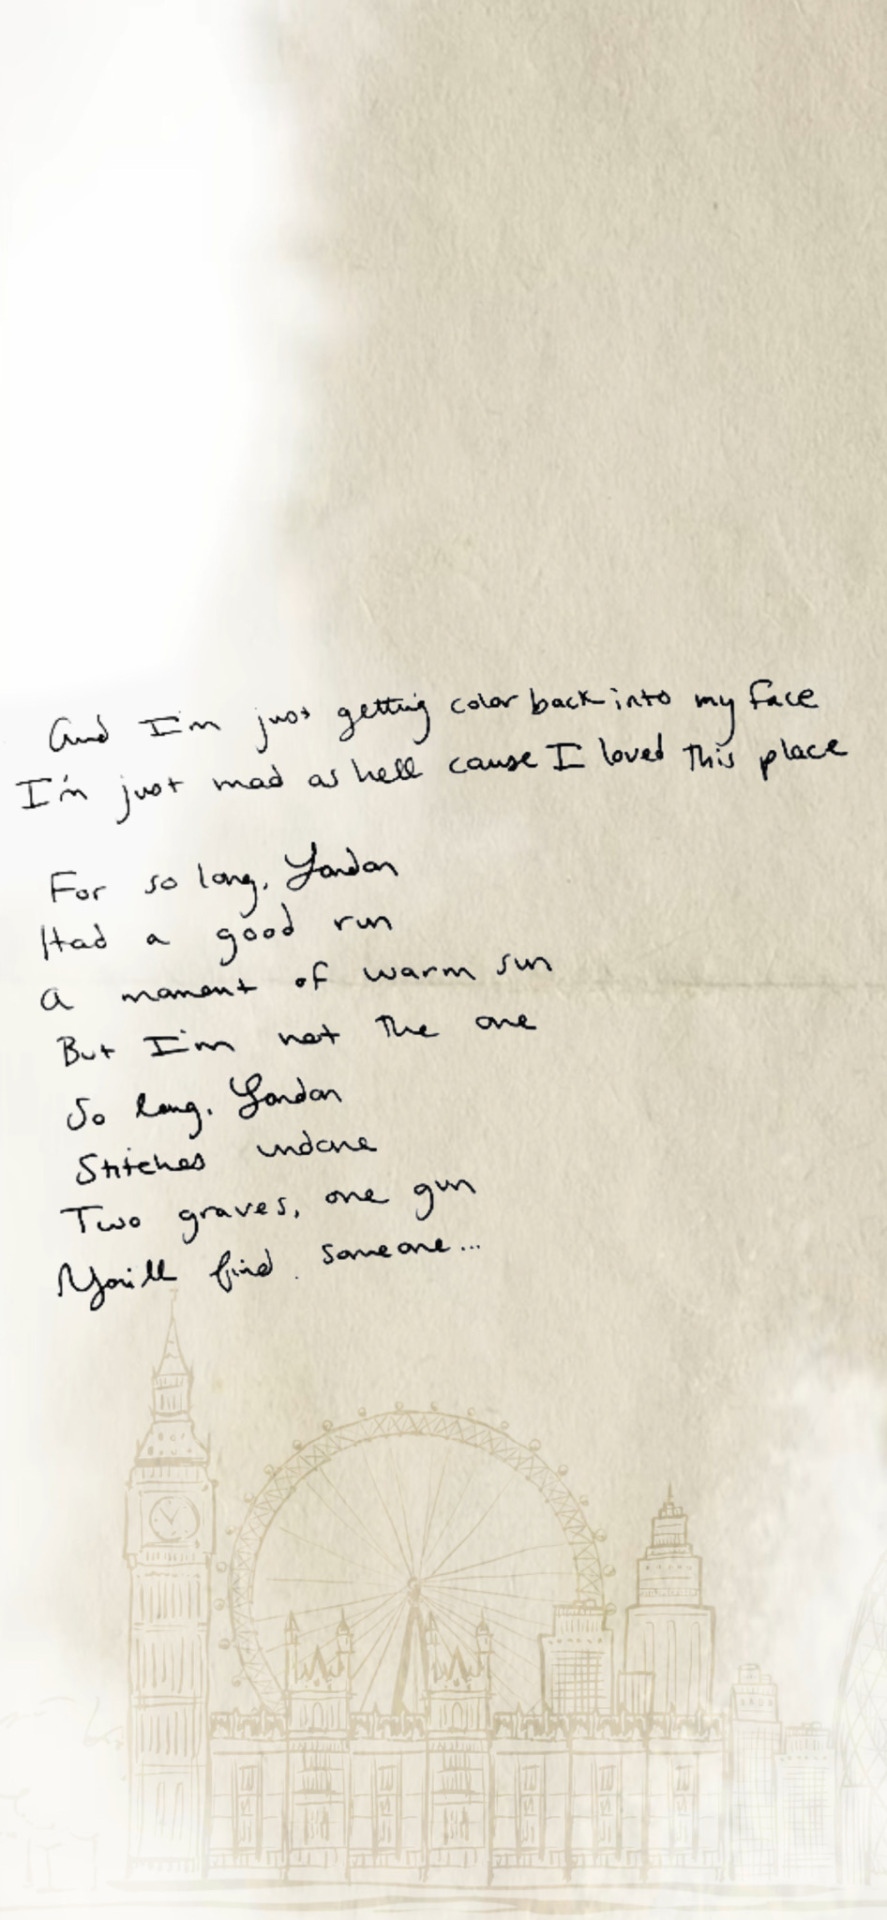 And I'm just getting color back into my face
I'm just mad as hell cause I loved this place
For so long, London
Had a good run
A moment of warm sun
But I'm not the one
So long, London
Stitches undone
Two graves, one gun
You'll find someone...